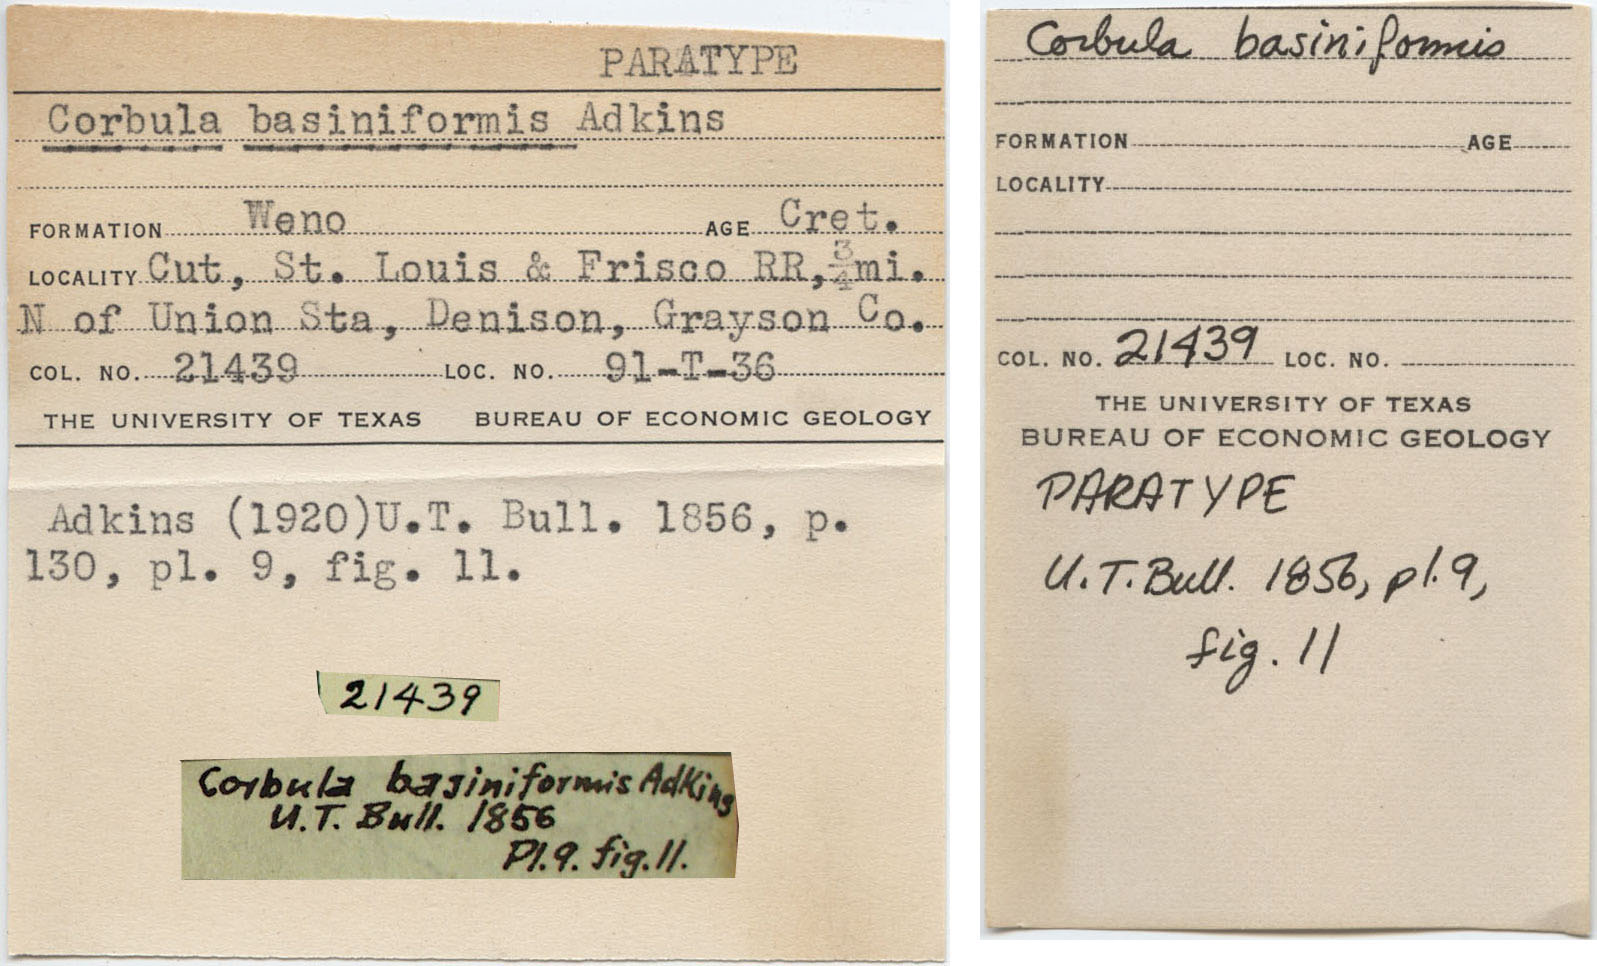 PARATYPE
Corbula basiniformis Adkins
FORMATION Weno AGE Cret.
LOCALITY Cut, St. Louis & Frisco RR, 3/4 mi.
N of Union Sta, Denison, Grayson Co.
COL. NO. 21439 LOC. NO. 91-T-36
THE UNIVERSITY OF TEXAS BUREAU OF ECONOMIC GEOLOGY
Adkins (1920)U.T. Bull. 1856, p.
130, pl. 9, fig. 11.
21439
Corbula basiniformis Adkins
U.T. Bull. 1856
Pl.9. fig.11.
Corbula basiniformis
FORMATION AGE
LOCALITY
COL. NO. 21439 LOC. NO.
THE UNIVERSITY OF TEXAS
BUREAU OF ECONOMIC GEOLOGY
PARATYPE
U.T. Bull. 1856, pl.9,
fig. 11